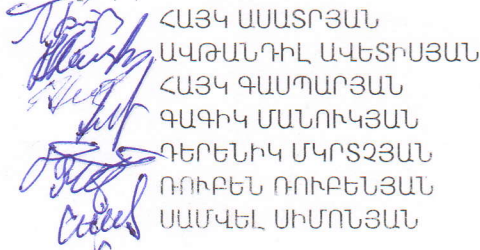 ՀԱՅԿ ԱՍԱՏՐՅԱՆ
ԱՎԹԱՆԴԻԼ ԱՎԵՏԻՍՅԱՆ
ՀԱՅԿ ԳԱՍՊԱՐՅԱՆ
ԳԱԳԻԿ ՄԱՆՈՒԿՅԱՆ
ԴԵՐԵՆԻԿ ՄԿՐՏՉՅԱՆ
ՌՈՒԲԵՆ ՌՈՒԲԵՆՅԱՆ
ՍԱՄՎԵԼ ՍԻՄՈՆՅԱՆ